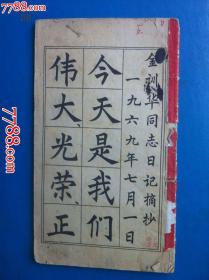 金训华同志日记摘抄
一九六九年七月一日
今天是我们
伟大、光荣、正
7788.com